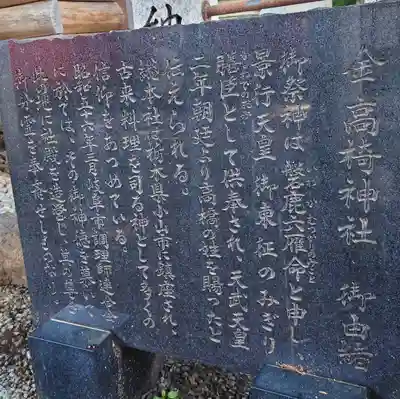 金高椅神社 御由緒
御祭神は磐鹿六雁命と申し、
景行天皇御東征のみぎり
膳臣として供奉され、天武天皇
二年朝廷より高橋の姓を賜ったと
伝えられる。
総本社は栃木県小山市に鎮座され、
古来料理を司る神として多くの
信仰をあつめている。
昭和五十六年三月岐阜市調理師連合会
に於ては、その御神徳を慕い
此の地に社殿を造営し、
御分霊を奉斎せしものなり